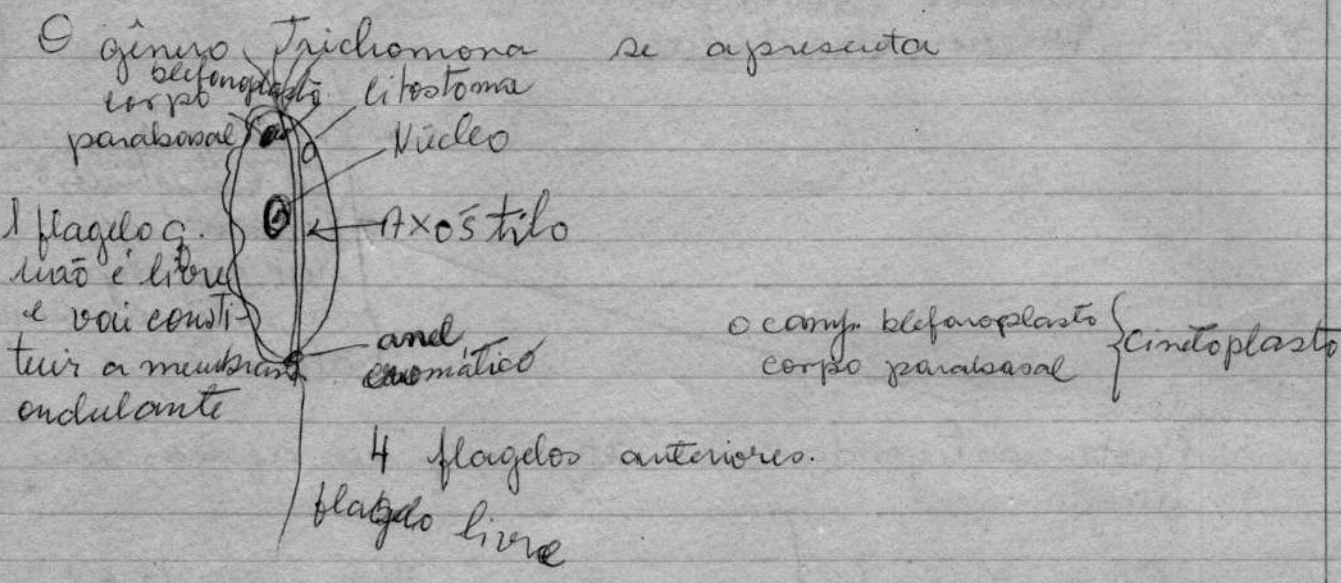 O gênero Trichomona se apresenta
blefaroplasto
corpo
parabasal
citostoma
Núcleo
Axóstilo
1 flagelo q.
não é livre
e vai consti-
tuir a membrana
ondulante
anel
cromático
o conj. blefaroplasto
corpo parabasal
Cinetoplasto
4 flagelos anteriores.
flagelo livre